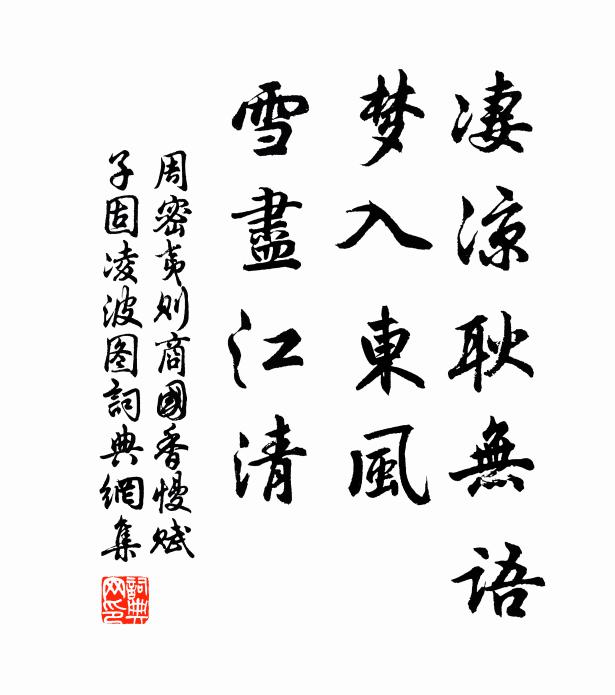 凄涼耿無語
梦入東風
雪盡江清
周密夷則商國香慢賦
子固凌波图詞典網集
詞典网印